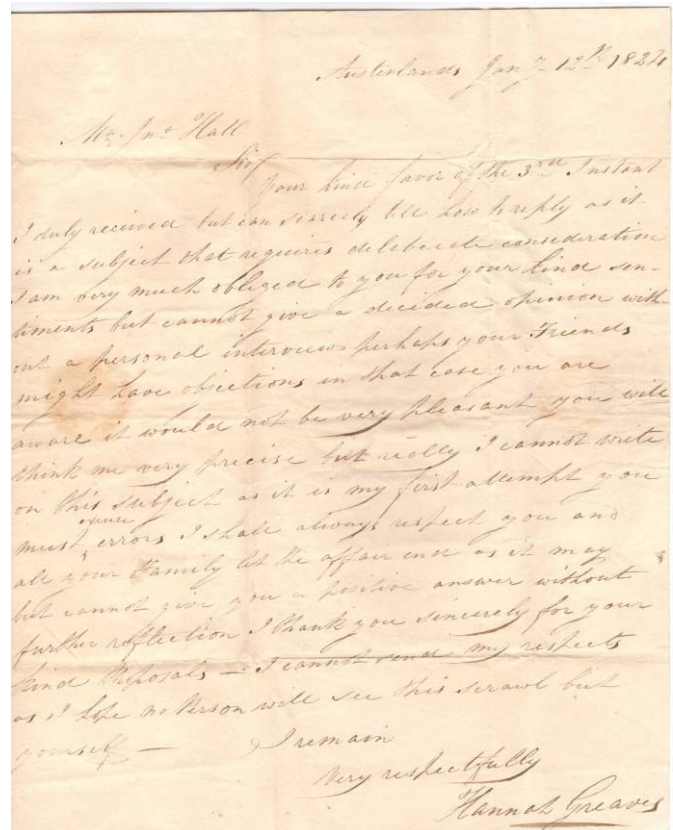 Austerlands Jany 12th 1824
Mr. Jn.o Hall
Sir
Your kind favor of the 3rd Instant
I duly received but can scarcely tell how to reply as it
is a subject that requires deliberate consideration
I am very much obliged to you for your kind sen-
timents but cannot give a decided opinion with-
out a personal interview perhaps your Friends
might have objections in that case you are
aware it would not be very pleasant you will
think me very precise but really I cannot write
on this subject as it is my first attempt you
must excuse errors I shall always respect you and
all your Family let the affair end as it may
but cannot give you a positive answer without
further reflection I thank you sincerely for your
kind Proposals — I cannot send my respects
as I hope no Person will see this scrawl but
yourself —
I remain
Very respectfully
Hannah Greaves